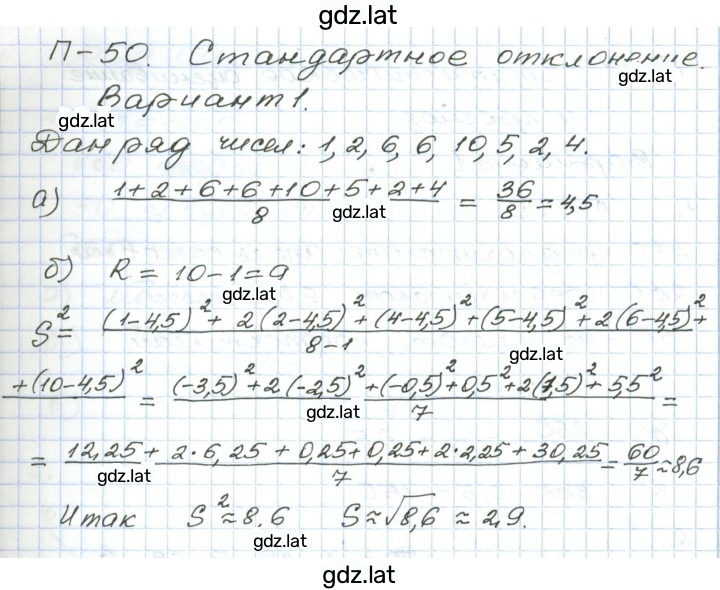 gdz.lat
П-50. Стандартное отклонение.
gdz.lat
Вариант 1.
gdz.lat
Дан ряд чисел: 1, 2, 6, 6, 10, 5, 2, 4.
а) (1+2+6+6+10+5+2+4)/8 = 36/8 = 4,5
gdz.lat
б) R = 10-1=9
gdz.lat
S² = ((1-4,5)² + 2(2-4,5)² + (4-4,5)² + (5-4,5)² + 2(6-4,5)² +
8-1
gdz.lat
+(10-4,5)² = ((-3,5)² + 2(-2,5)² + (-0,5)² + 0,5² + 2(1,5)² + 5,5²)/7 =
gdz.lat
= (12,25 + 2·6,25 + 0,25 + 0,25 + 2·2,25 + 30,25)/7 = 60/7 ≈ 8,6
gdz.lat
Итак S² ≈ 8,6 S ≈ √8,6 ≈ 2,9.
gdz.lat
gdz.lat